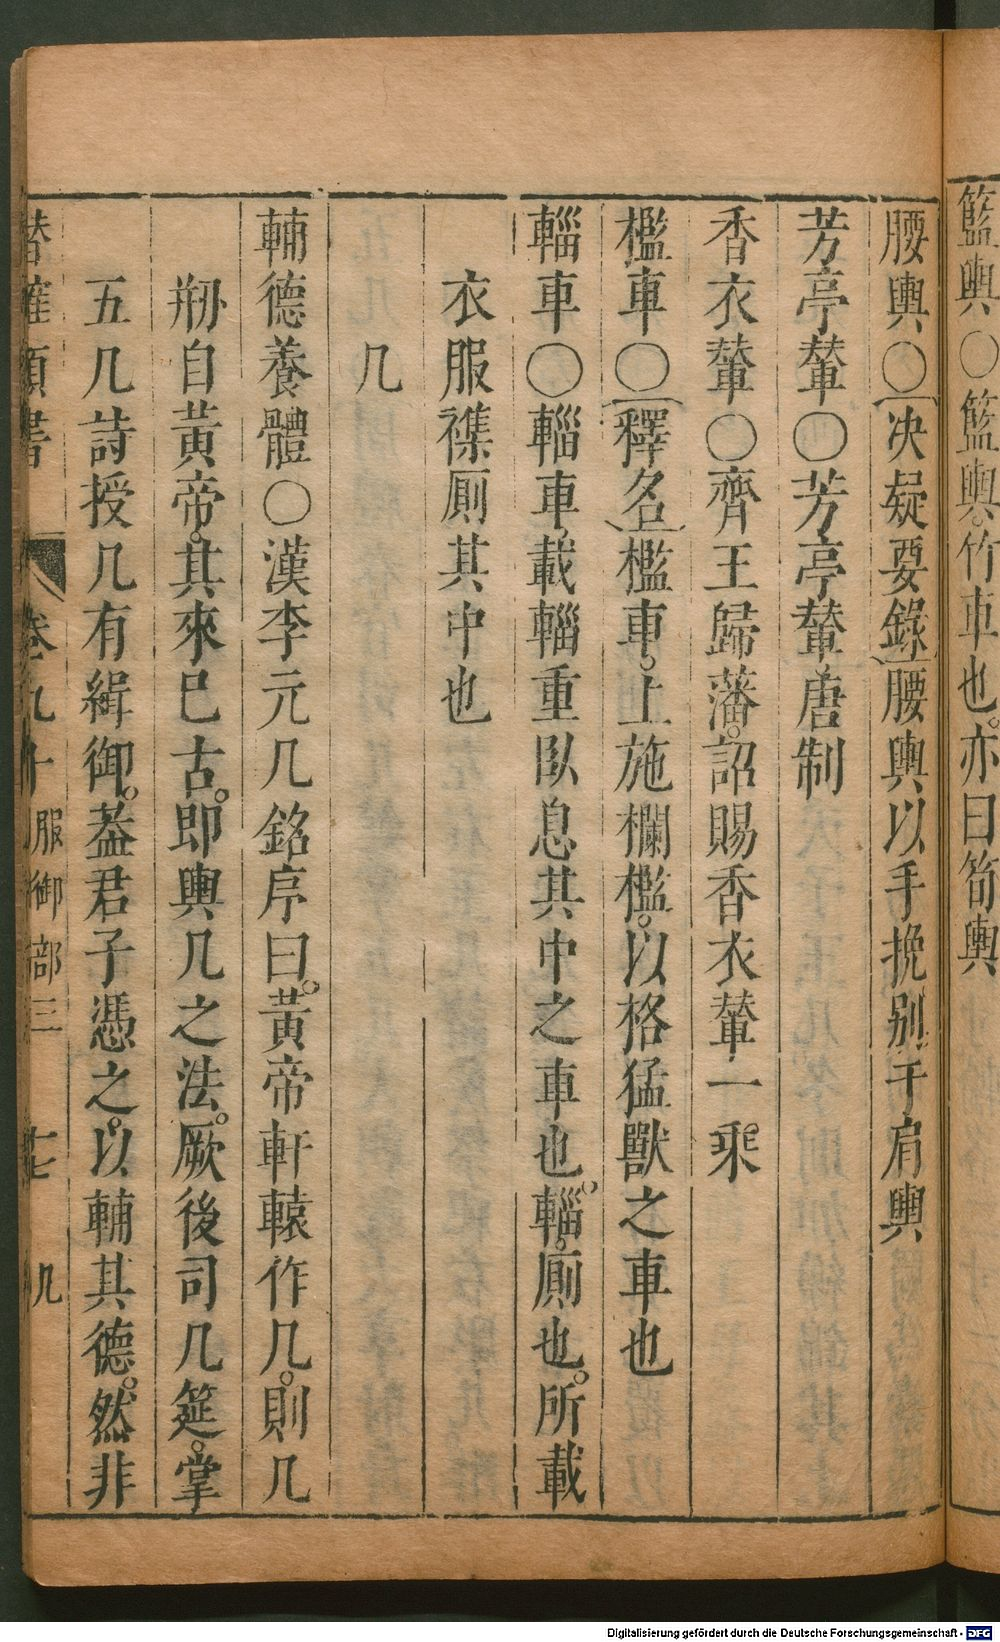 籃輿○籃輿。竹車也。亦曰筍輿
腰輿○決疑要錄腰輿以手挽别于肩輿
芳亭輦○芳亭輦唐制
香衣輦○齊王歸藩。詔賜香衣輦一乘
檻車○釋名檻車。上施欄檻。以格猛獸之車也
輜車○輜車。載輜重臥息其中之車也。輜。廁也。所載
衣服襍廁其中也
几
輔德養體○漢李元几銘序曰。黃帝軒轅作几。則几
剏自黃帝。其來已古。即輿几之法。厥後司几筵。掌
五几詩授几有緝御。葢君子憑之。以輔其德。然非
潛確類書 卷九十 服御部三 十七 几
Digitalisierung gefördert durch die Deutsche Forschungsgemeinschaft - DFG